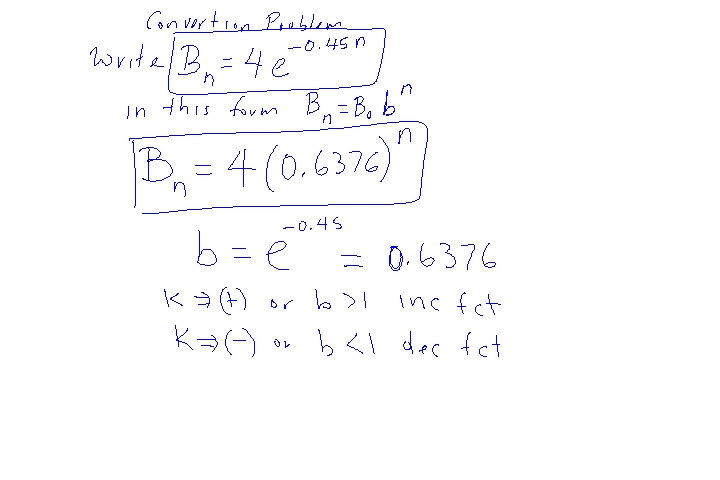 Convertion Problem
Write Bₙ = 4 e^(-0.45n)
in this form Bₙ = B₀ bⁿ
Bₙ = 4(0.6376)ⁿ
b = e^(-0.45) = 0.6376
K ⇒ (+) or b > 1 inc fct
K ⇒ (-) or b < 1 dec fct